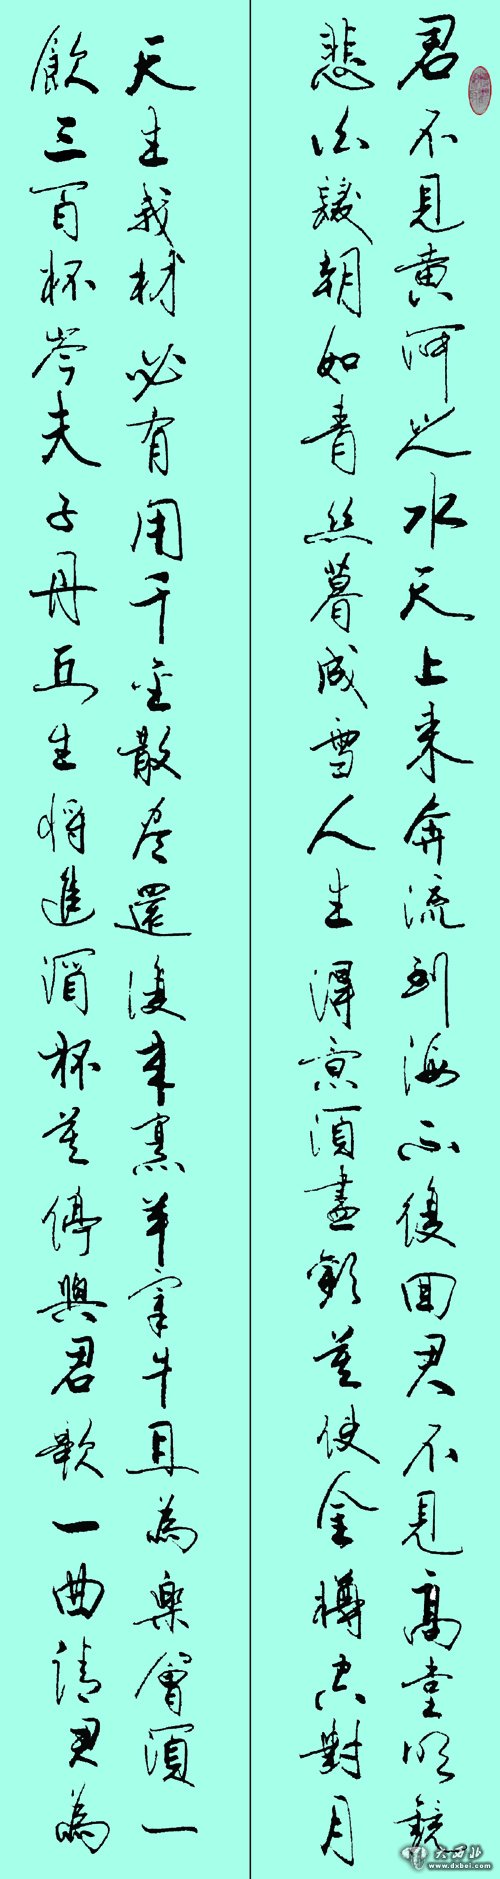 君不見黃河之水天上來奔流到海不復回君不見高堂明鏡
悲白髮朝如青絲暮成雪人生得意須盡歡莫使金樽空對月
天生我材必有用千金散盡還復來烹羊宰牛且為樂會須一
飲三百杯岑夫子丹丘生將進酒杯莫停與君歌一曲請君為
大西北
www.dxbei.com